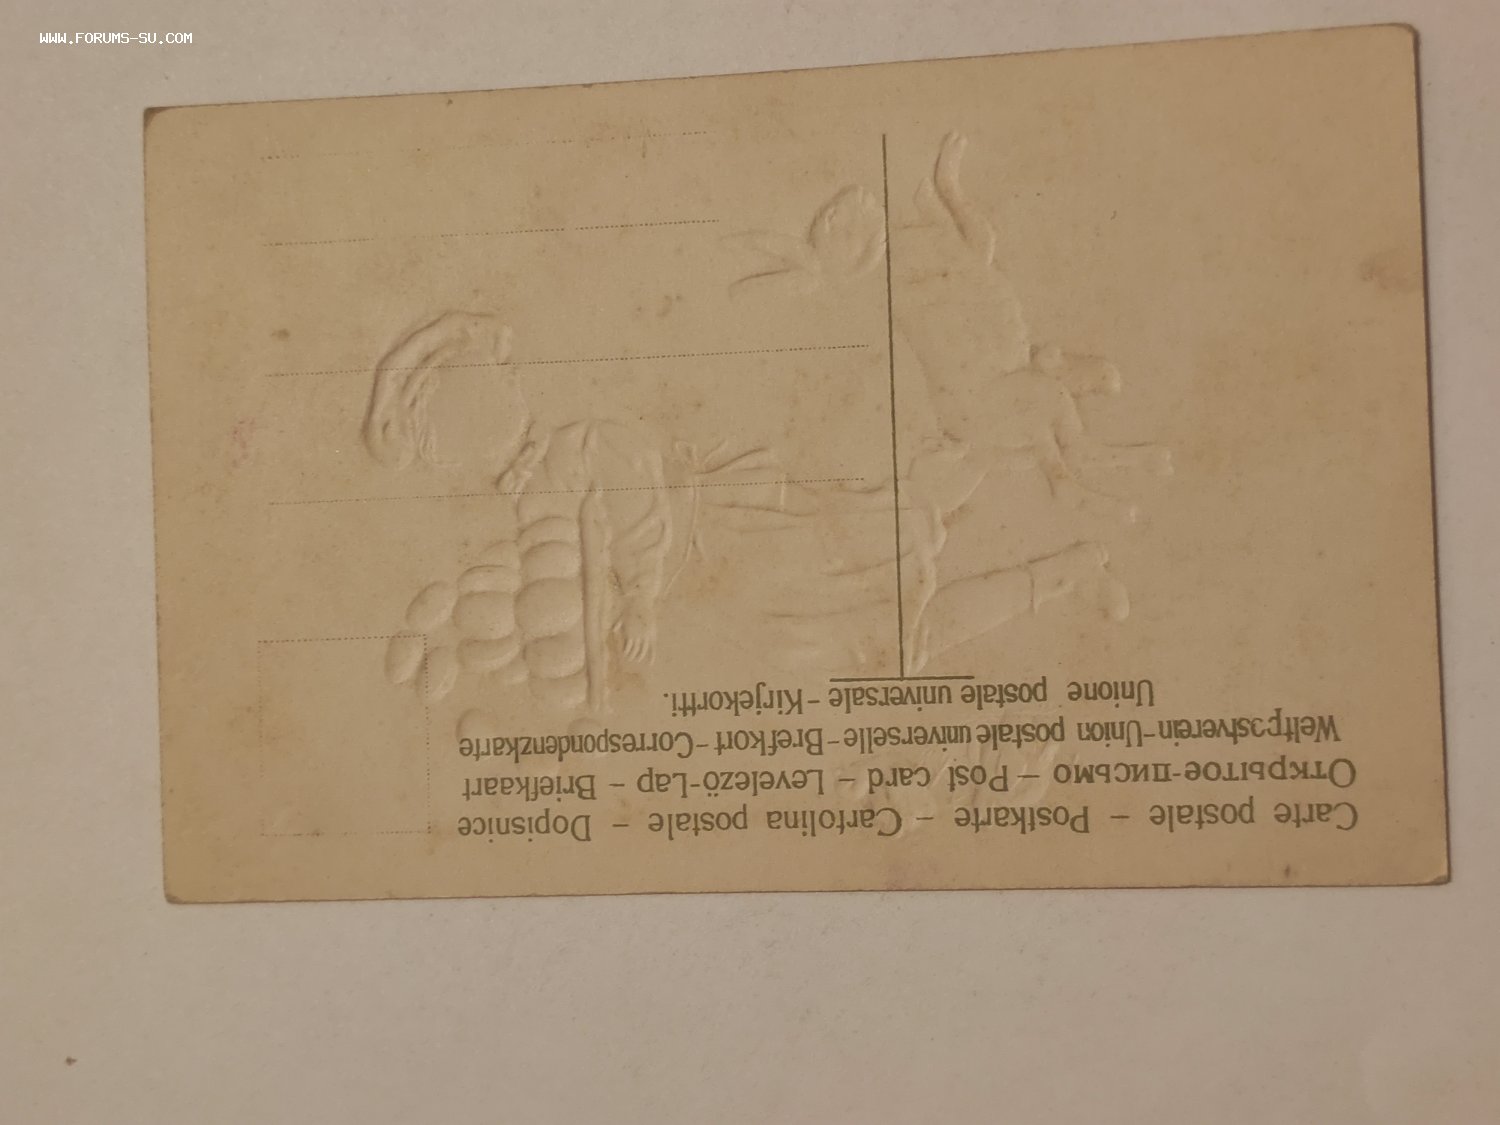 WWW.FORUMS-SU.COM
Carte postale – Postkarte – Cartolina postale – Dopisnice
Открытое-письмо – Post card – Levelező-Lap – Briefkaart
Weltpostverein-Union postale universelle-Brefkort-Correspondenzkarte
Unione postale universale-Kirjekortti.